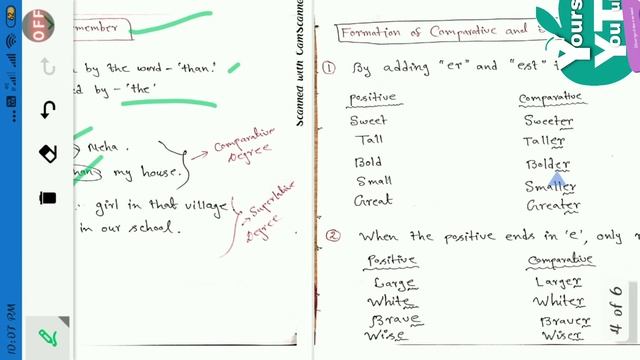 OFF
10:07 PM
member
by the word - 'than.'
by - 'the'
Neha.
my house.
→ Comparative
Degree
girl in that village
in our school.
→ Superlative
Degree
Scanned with CamScanner
Formation of Comparative and
① By adding "er" and "est"
Positive Comparative
Sweet Sweeter
Tall Taller
Bold Bolder
Small Smaller
Great Greater
② When the positive ends in 'e', only
Positive Comparative
Large Larger
White Whiter
Brave Braver
Wise Wiser
4 of 6
Yours
You